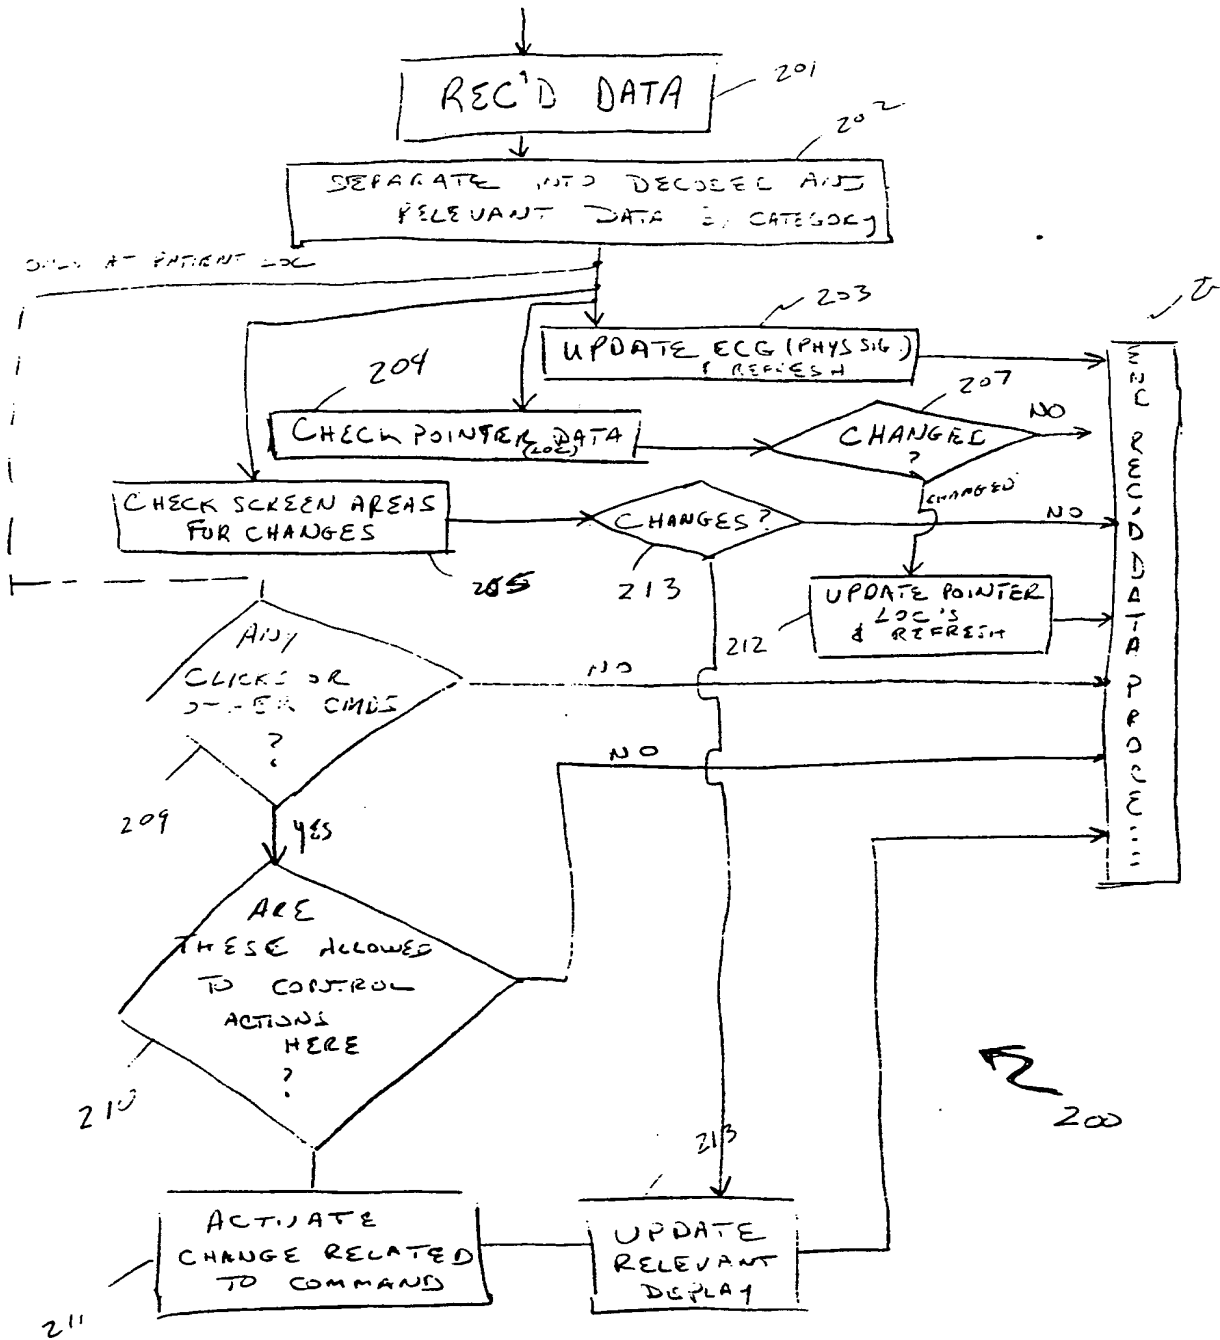 REC'D DATA
201
202
SEPARATE INTO DECODED AND
RELEVANT DATA BY CATEGORY
ONLY AT PATIENT LOC
203
UPDATE ECG (PHYS SIG.)
& REFRESH
204
CHECK POINTER DATA
(LOC)
207
CHANGED
?
NO
CHANGED
CHECK SCREEN AREAS
FOR CHANGES
205
CHANGES?
213
NO
UPDATE POINTER
LOC'S
& REFRESH
212
ANY
CLICKS OR
OTHER CMDS
?
209
NO
YES
ARE
THESE ALLOWED
TO CONTROL
ACTIONS
HERE
?
210
NO
ACTIVATE
CHANGE RELATED
TO COMMAND
211
UPDATE
RELEVANT
DISPLAY
213
END REC'D DATA PROCESS
200